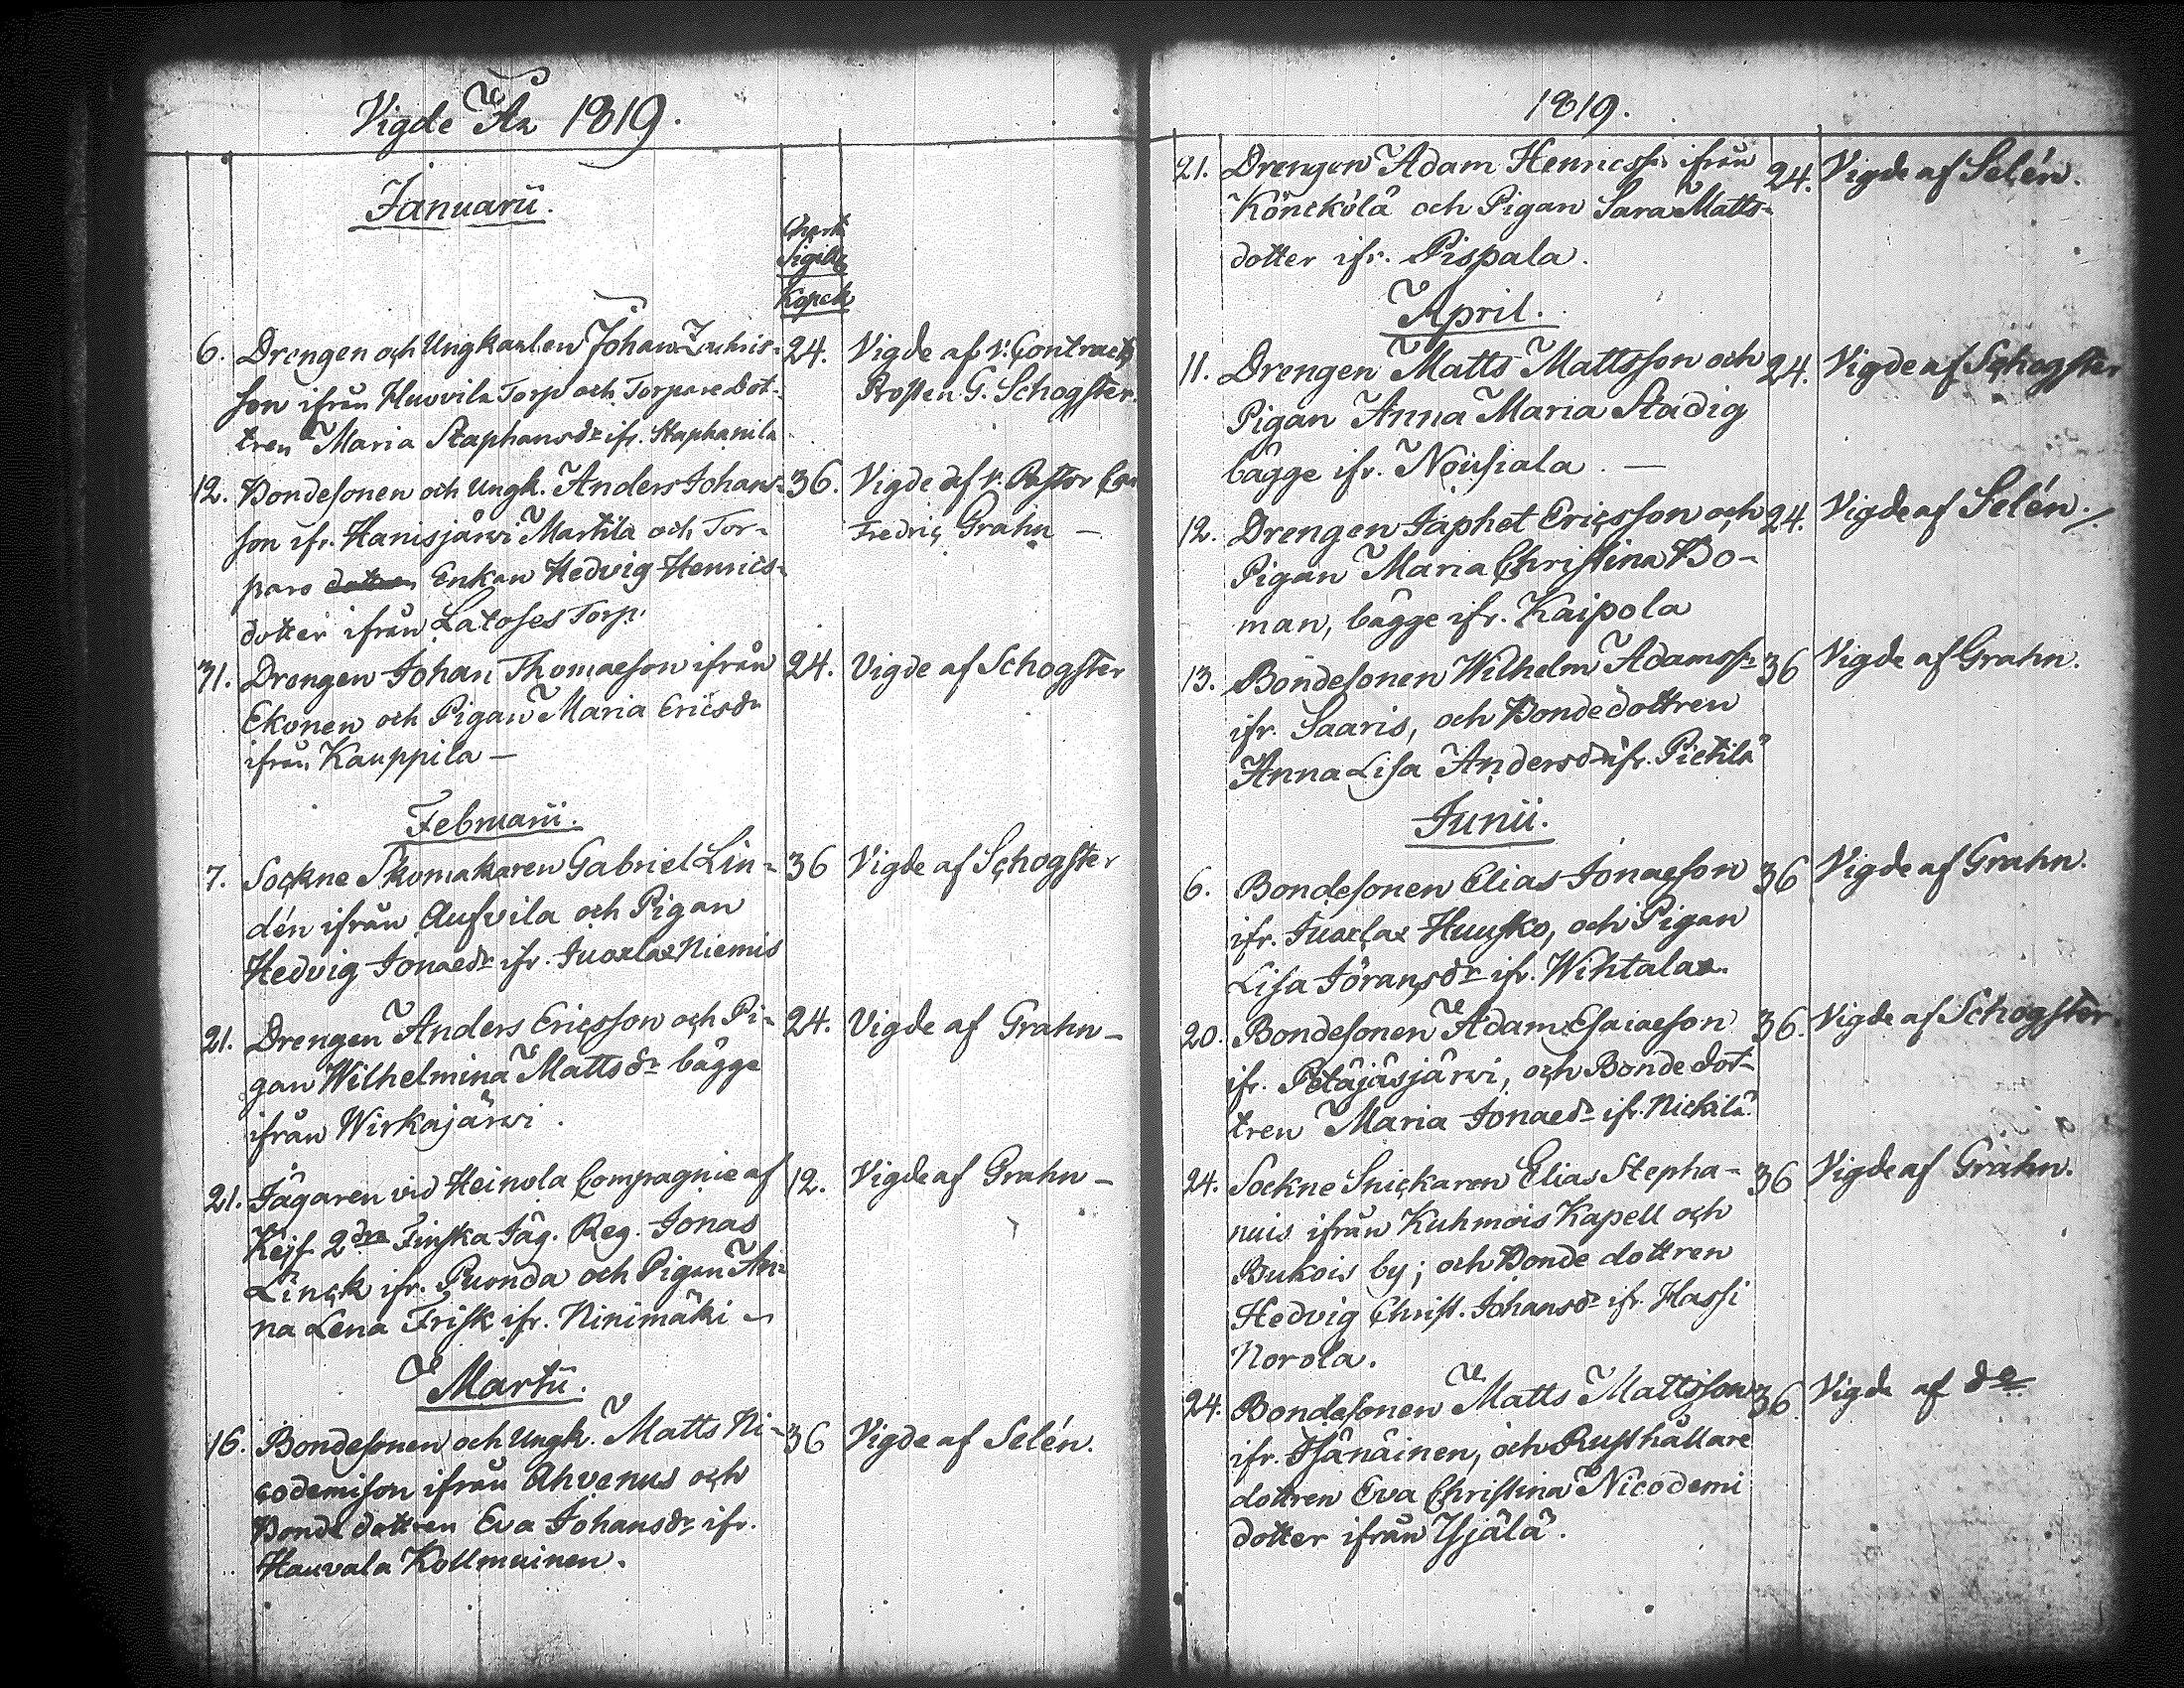 Vigde År 1819.
Januarii.
Chart:
Sigill:
Kopek
6. Drengen och Ungkarlen Johan
son ifrån Huovila Torp och Torpare dot- 24. Vigde af V. Contracts
tren Maria Staphansdr ifr. Staphanila Prosten G. Schogster.
12. Bondesonen och Ungk. Anders Johans- 36. Vigde af V. Pastor
son ifr. Hanisjärvi Martila och Tor- Fredric Grahn –
pare dottren Enkan Hedvig Henrics-
dotter ifrån Latoses Torp.
31. Drengen Johan Thomaeson ifrån 24. Vigde af Schogster
Ekonen och Pigan Maria Ericsdr
ifrån Kauppila –
Februarii.
7. Sockne Skomakaren Gabriel Lin- 36 Vigde af Schogster
dén ifrån Aufvila och Pigan
Hedvig Jonaedr ifr. Juoxlax Niemis
21. Drengen Anders Ericsson och Pi- 24. Vigde af Grahn –
gan Wilhelmina Mattsdr bägge
ifrån Wirkajärwi.
21. Jägaren vid Heinola Compagnie af 12. Vigde af Grahn –
Kejs. 2dra Finska Jäg. Reg. Jonas
Linck ifr. Puonda och Pigan An-
na Lena Frisk ifr. Ninimäki –
Martii.
16. Bondesonen och Ungk. Matts Ni- 36 Vigde af Selén.
codemison ifrån Ahvenus och
Bonde dottren Eva Johansdr ifr.
Hauvala Kollmainen.
1819.
21. Drengen Adam Henricss. ifrån 24. Vigde af Selén.
Könckölä och Pigan Sara Matts-
dotter ifr. Pispala.
April.
11. Drengen Matts Mattsson och 24. Vigde af Schogster
Pigan Anna Maria Stadig
bägge ifr. Nousiala. –
12. Drengen Japhet Ericsson och 24. Vigde af Selén.
Pigan Maria Christina Bo-
man, bägge ifr. Kaipola
13. Bondesonen Wilhelm Adamss. 36 Vigde af Grahn.
ifr. Saaris, och Bondedottren
Anna Lisa Andersdr ifr. Pietilä
Junii.
6. Bondesonen Elias Jonaeson 36 Vigde af Grahn.
ifr. Juoxlax Huusko, och Pigan
Lisa Jöransdr ifr. Wihtalax.
20. Bondesonen Adam Esaiaeson 36. Vigde af Schogster.
ifr. Petäjäsjärwi, och Bonde dot-
tren Maria Jonaedr ifr. Nickilä
24. Sockne Snickaren Elias Stepha- 36 Vigde af Grahn.
nuis ifrån Kuhmois Kapell och
Pukois by; och Bonde dottren
Hedvig Christ. Johansdr ifr. Hassi
Norola.
24. Bondesonen Matts Mattsson 36. Vigde af do
ifr. Isänäinen, och Rusthållare
dottren Eva Christina Nicodemi
dotter ifrån Ysjälä.